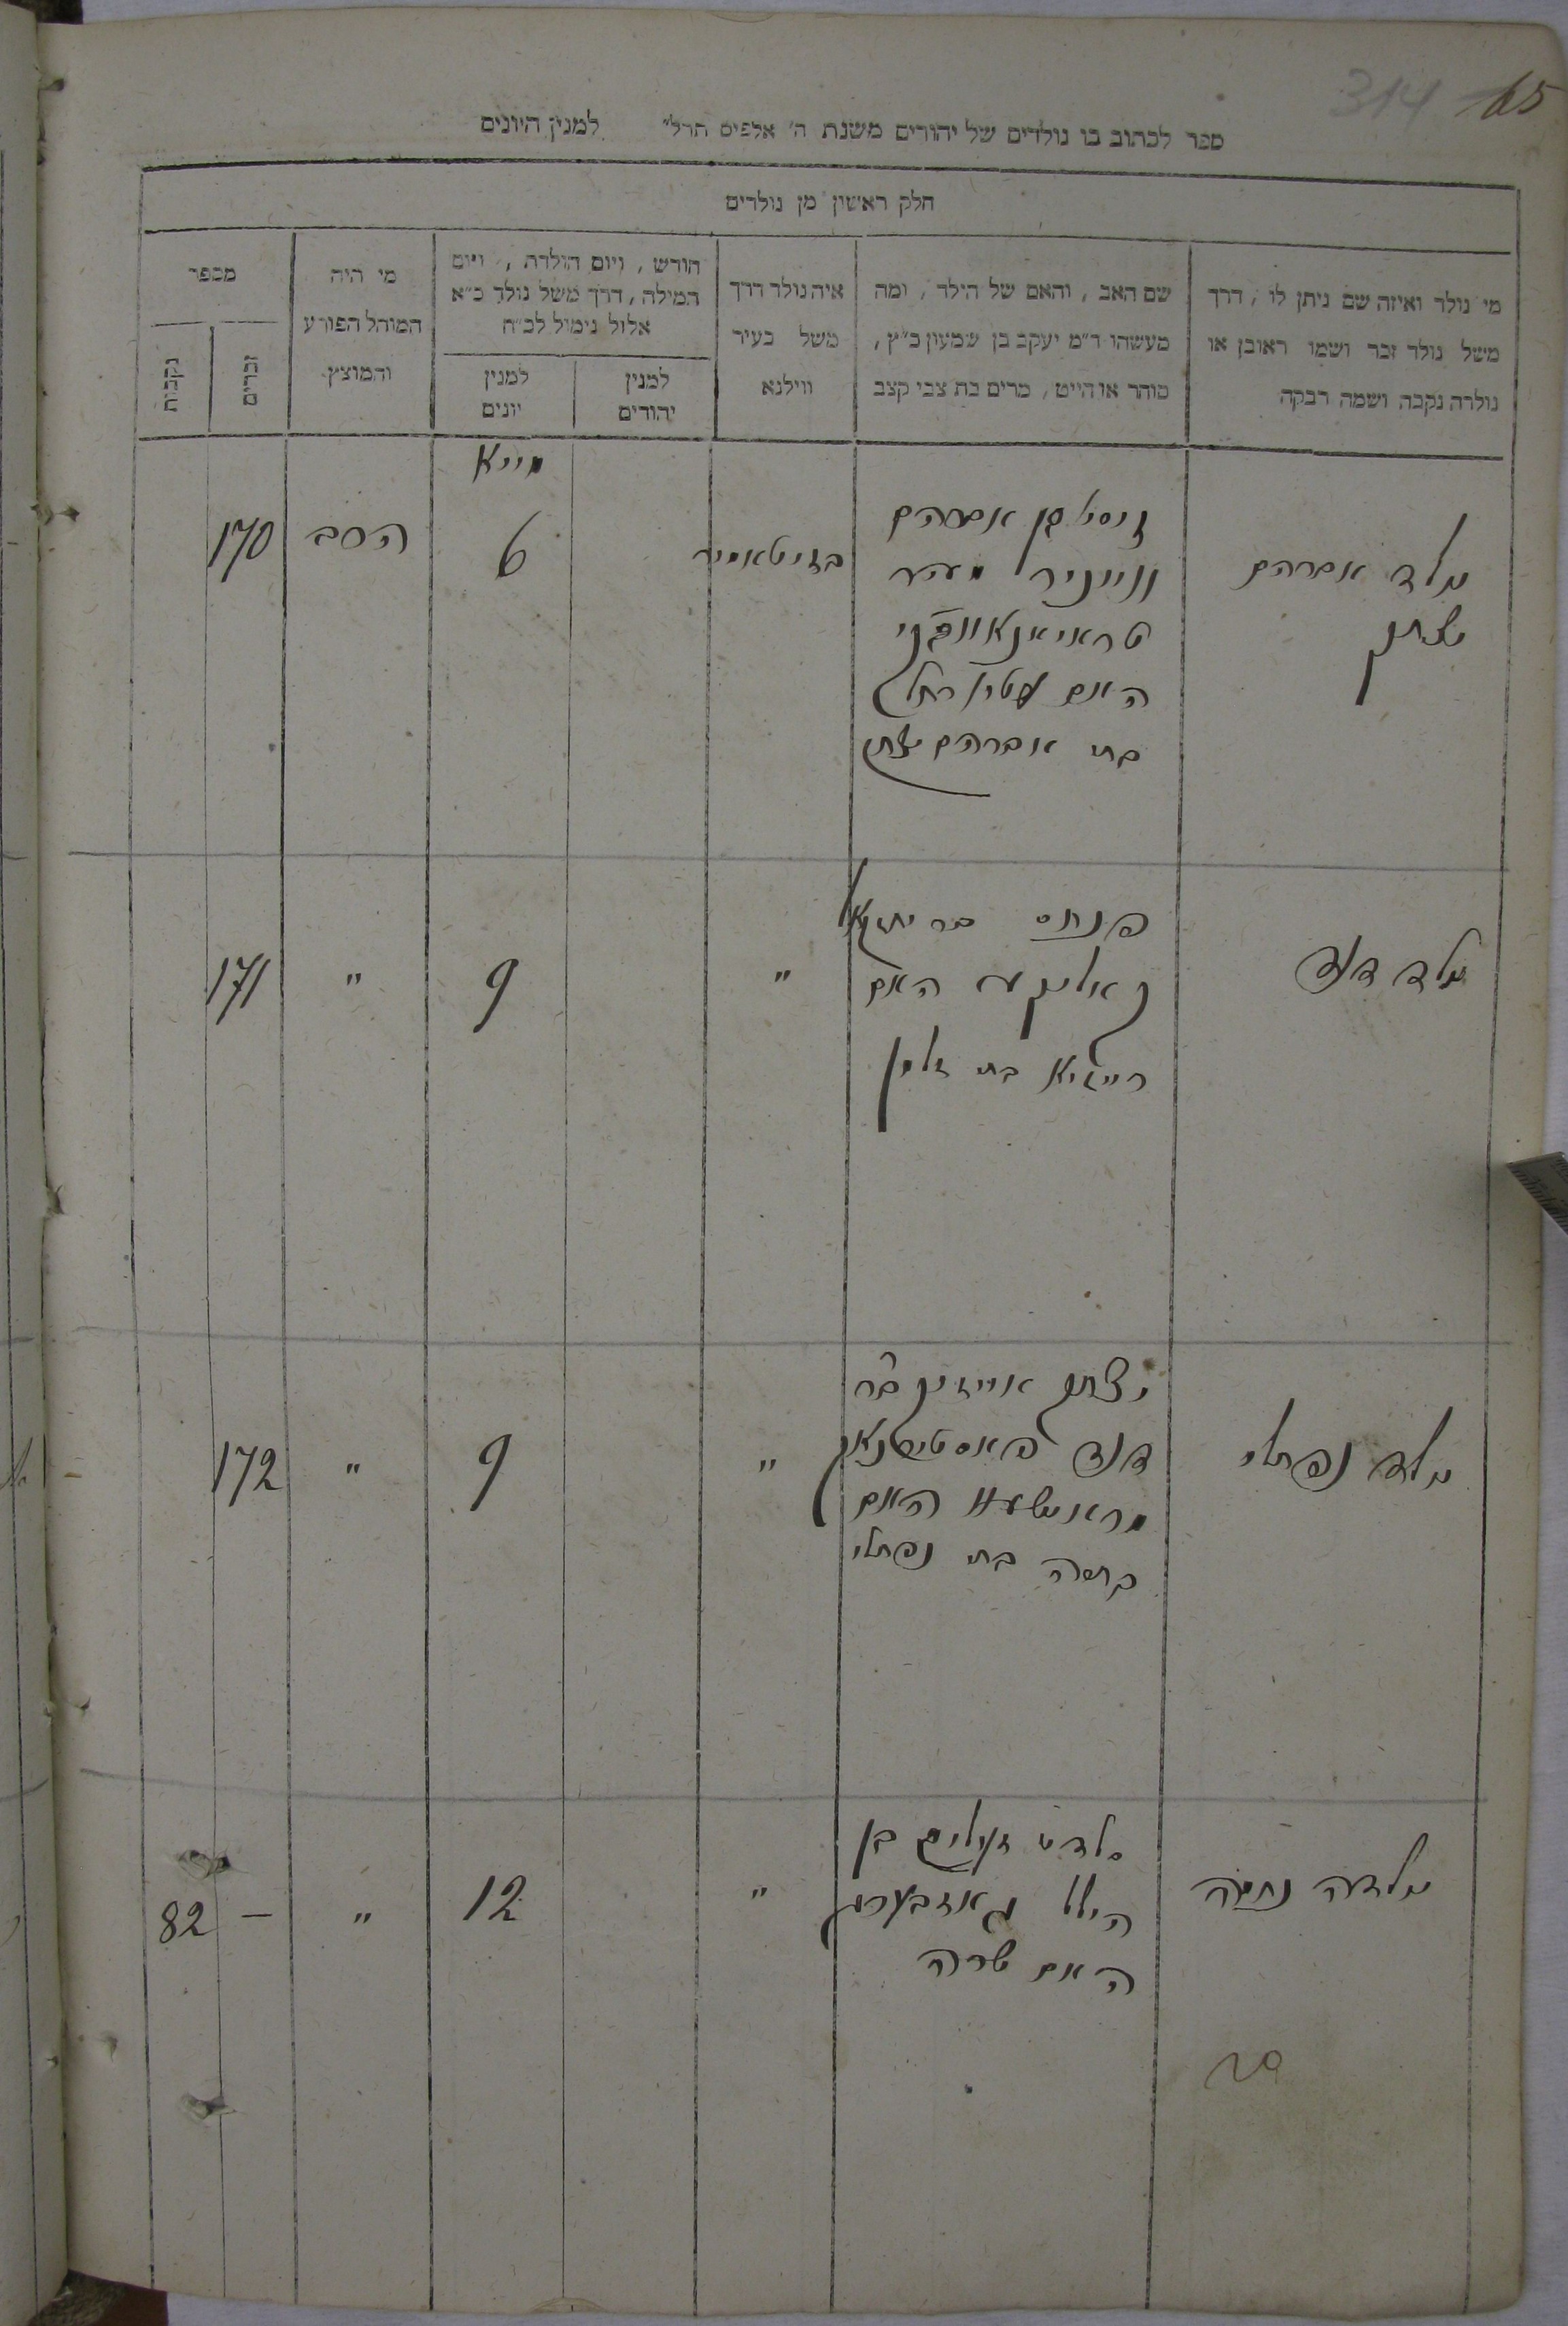 314 65
ספר לכתוב בו נולדים של יהודים משנת ה' אלפים תרל" למנין היונים
חלק ראשון מן נולדים
מי נולד ואיזה שם ניתן לו, דרך
משל נולד זכר ושמו ראובן או
נולדה נקבה ושמה רבקה
שם האב, והאם של הילד, ומה
מעשהו ד"מ יעקב בן שמעון כ"ץ,
סוחר או חייט, מרים בת צבי קצב
איה נולד דרך
משל בעיר
ווילנא
חודש, ויום הולדת, ויום
המילה, דרך משל נולד כ"א
אלול נימול לכ"ח
למנין
יהודים
למנין
יונים
מי היה
המוהל הפורע
והמוצץ
מספר
זכרים
נקבות
מייא
נולד אברהם
יצחק
ניסל בן אברהם
ווייניר
האם
בת אברהם יצחק
בזיטאמיר
6
הרב
170
נולד דוד
פנחס בר יחזקאל
האם
רייזיא בת זלמן
"
9
"
171
נולד נפתלי
יצחק אייזיק ב"ר
דוד
האם
בת נפתלי
"
9
"
172
נולדה נחמה
בן
הלל
האם שרה
"
12
"
–
82